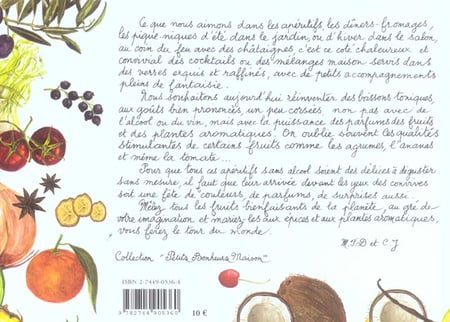 Ce que nous aimons dans les apéritifs, les dîners-fromages,
les pique-niques d'été dans le jardin, ou d'hiver dans le salon,
au coin du feu avec des châtaignes, c'est ce coté chaleureux et
convivial des cocktails ou des mélanges maison servis dans
des verres exquis et raffinés, avec de petits accompagnements
pleins de fantaisie.
Nous souhaitons aujourd'hui réinventer des boissons toniques,
aux goûts bien prononcés, un peu corsées non pas avec de
l'alcool ou du vin, mais avec la puissance des parfums des fruits
et des plantes aromatiques. On oublie souvent les qualités
stimulantes de certains fruits comme les agrumes, l'ananas
et même la tomate...
Pour que tous ces apéritifs sans alcool soient des délices à déguster
sans mesure, il faut que leur arrivée devant les yeux des convives
soit une fête de couleurs, de parfums, de surprises aussi.
Mêlez tous les fruits bienfaisants de la planète, au gré de
votre imagination et mariez-les aux épices et aux plantes aromatiques,
vous ferez le tour du monde.
M.F.D et C.J
Collection "Petits Bonheurs Maison"
ISBN 2-7449-0536-4
9 782744 905360
10 €